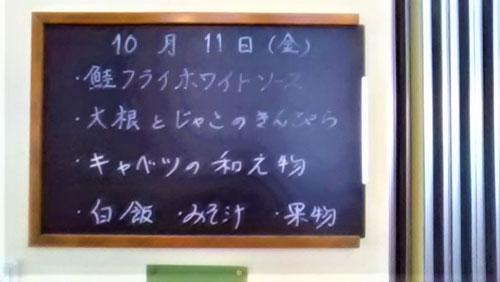 10月11日(金)
・鮭フライホワイトソース
・大根とじゃこのきんぴら
・キャベツの和え物
・白飯 ・みそ汁 ・果物